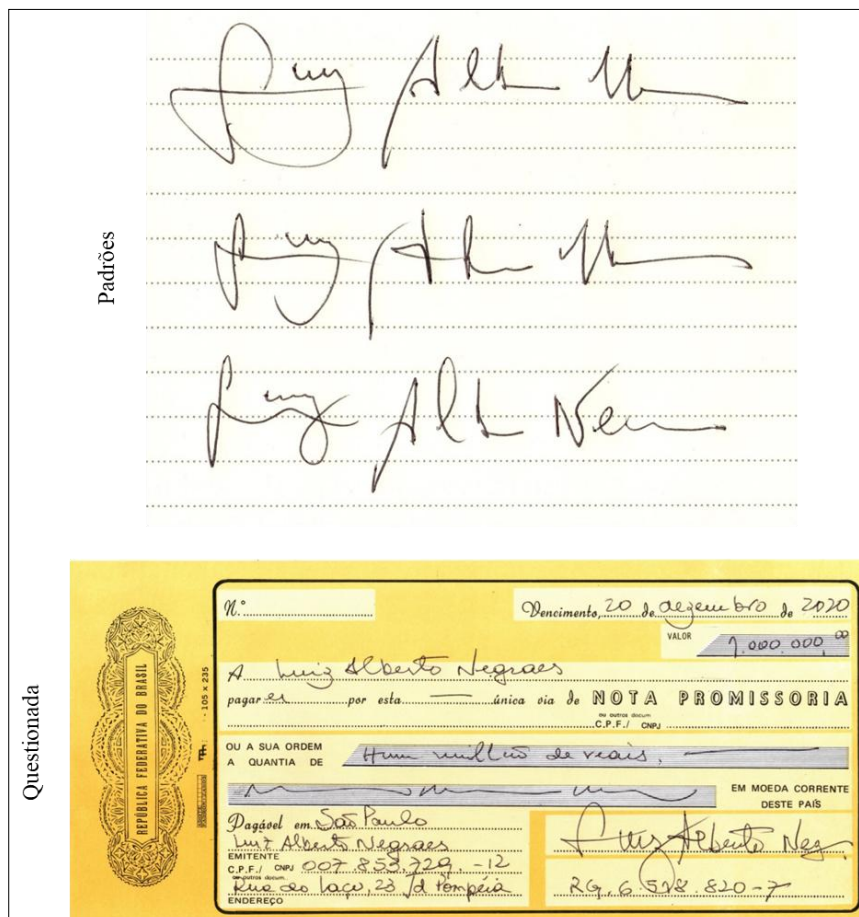 Padrões
Questionada
REPÚBLICA FEDERATIVA DO BRASIL
105 x 235
N.º
Vencimento, 20 de dezembro de 2020
VALOR 1.000.000,00
A Luiz Alberto Negraes
pagar ei por esta única via de NOTA PROMISSORIA
ou outros docum.
C.P.F./ CNPJ
OU A SUA ORDEM
A QUANTIA DE Hum milhão de reais,
EM MOEDA CORRENTE
DESTE PAÍS
Pagável em São Paulo
Luiz Alberto Negraes
EMITENTE
C.P.F./ CNPJ 007.853.729-12
ou outros docum.
Rua do Laço, 23 Pompéia
ENDEREÇO
Luiz Alberto Neg
RG. 6.578.820-7